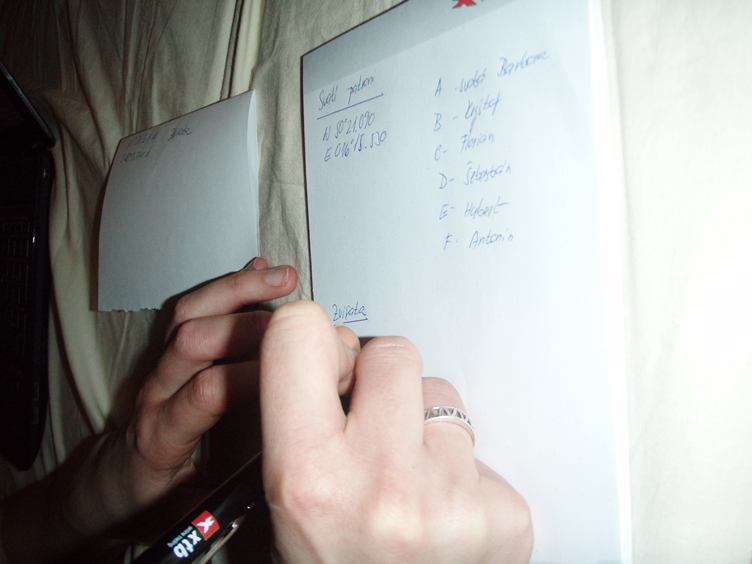 Svatí patroni
N 50°21.090
E 016°15.530
A - svatá Barbora
B - Kryštof
C - Florian
D - Šebestián
E - Hubert
F - Antonín
Zvířata
xtb